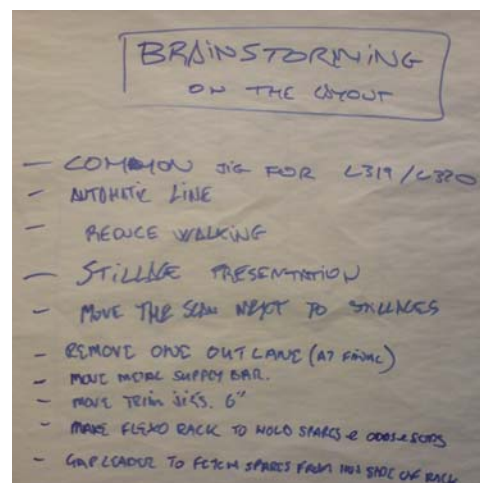 BRAINSTORMING
ON THE LAYOUT
- COMMON JIG FOR L319/L320
- AUTOMATIC LINE
- REDUCE WALKING
- STILLAGE PRESENTATION
- MOVE THE SCAN NEXT TO STILLAGES
- REMOVE ONE OUT LANE (AT FINAL)
- MOVE METAL SUPPLY BAR.
- MOVE TRIM JIGS. 6"
- MAKE FLEXO RACK TO HOLD SPARES & ODDS & SODS
- GAP LEADER TO FETCH SPARES FROM SIDE OF RACK